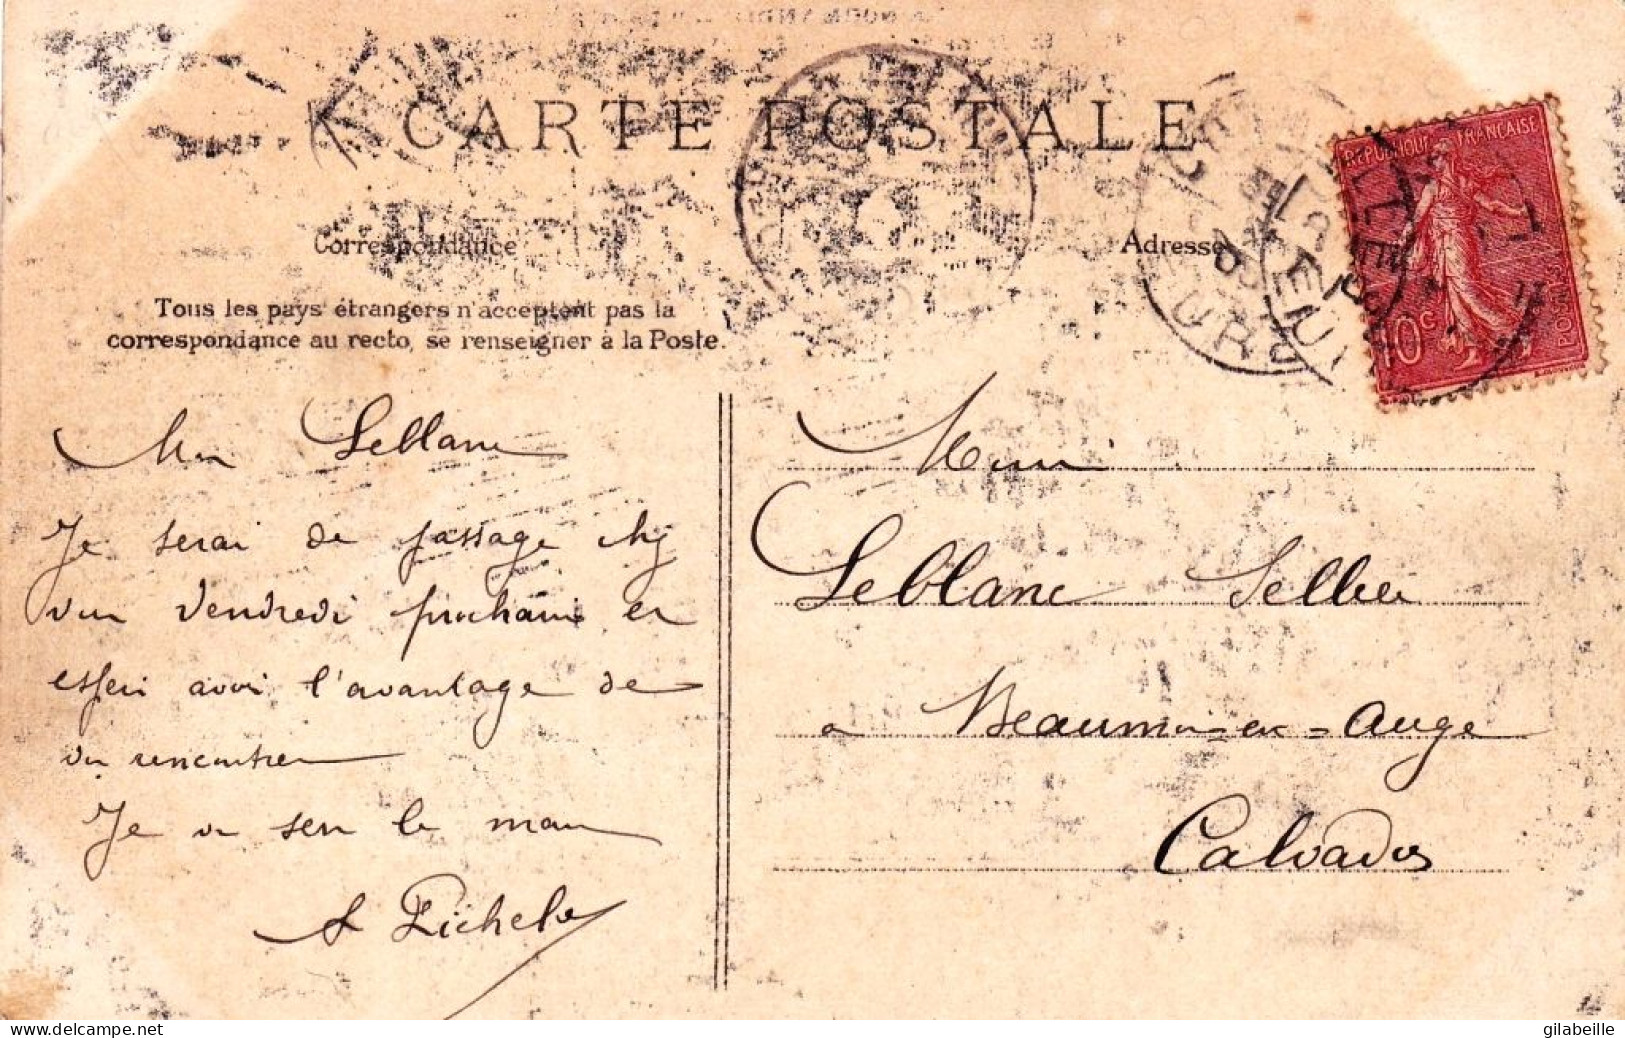 CARTE POSTALE
Correspondance
Adresse
Tous les pays étrangers n'acceptent pas la
correspondance au recto, se renseigner à la Poste.
REPUBLIQUE FRANÇAISE
10c
POSTES
Mon Leblanc
Je serai de passage chez
vous Vendredi prochain et
espère avoir l'avantage de
vous rencontrer
Je vous serre la main
Leblanc Sellier
a Beaumont=en=Auge
Calvados
www.delcampe.net
gilabeille